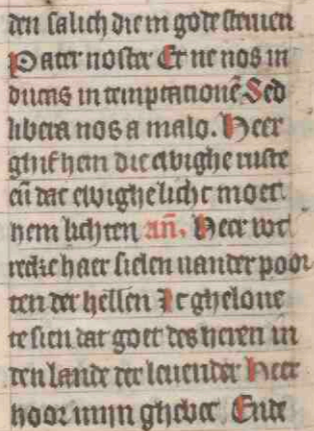 den salich die in gode steruen
Pater noster Et ne nos in
ducas in temptationē Sed
libera nos a malo. Heer
ghif hem die ewighe ruste
en̄ dat ewighe licht moet
hem lichten an̄. Heer wt
recke haer sielen uander poor
ten der hellen Ic gheloue
te sien dat goet des heren in
den lande der leuender Heer
hoor mijn ghebet Ende